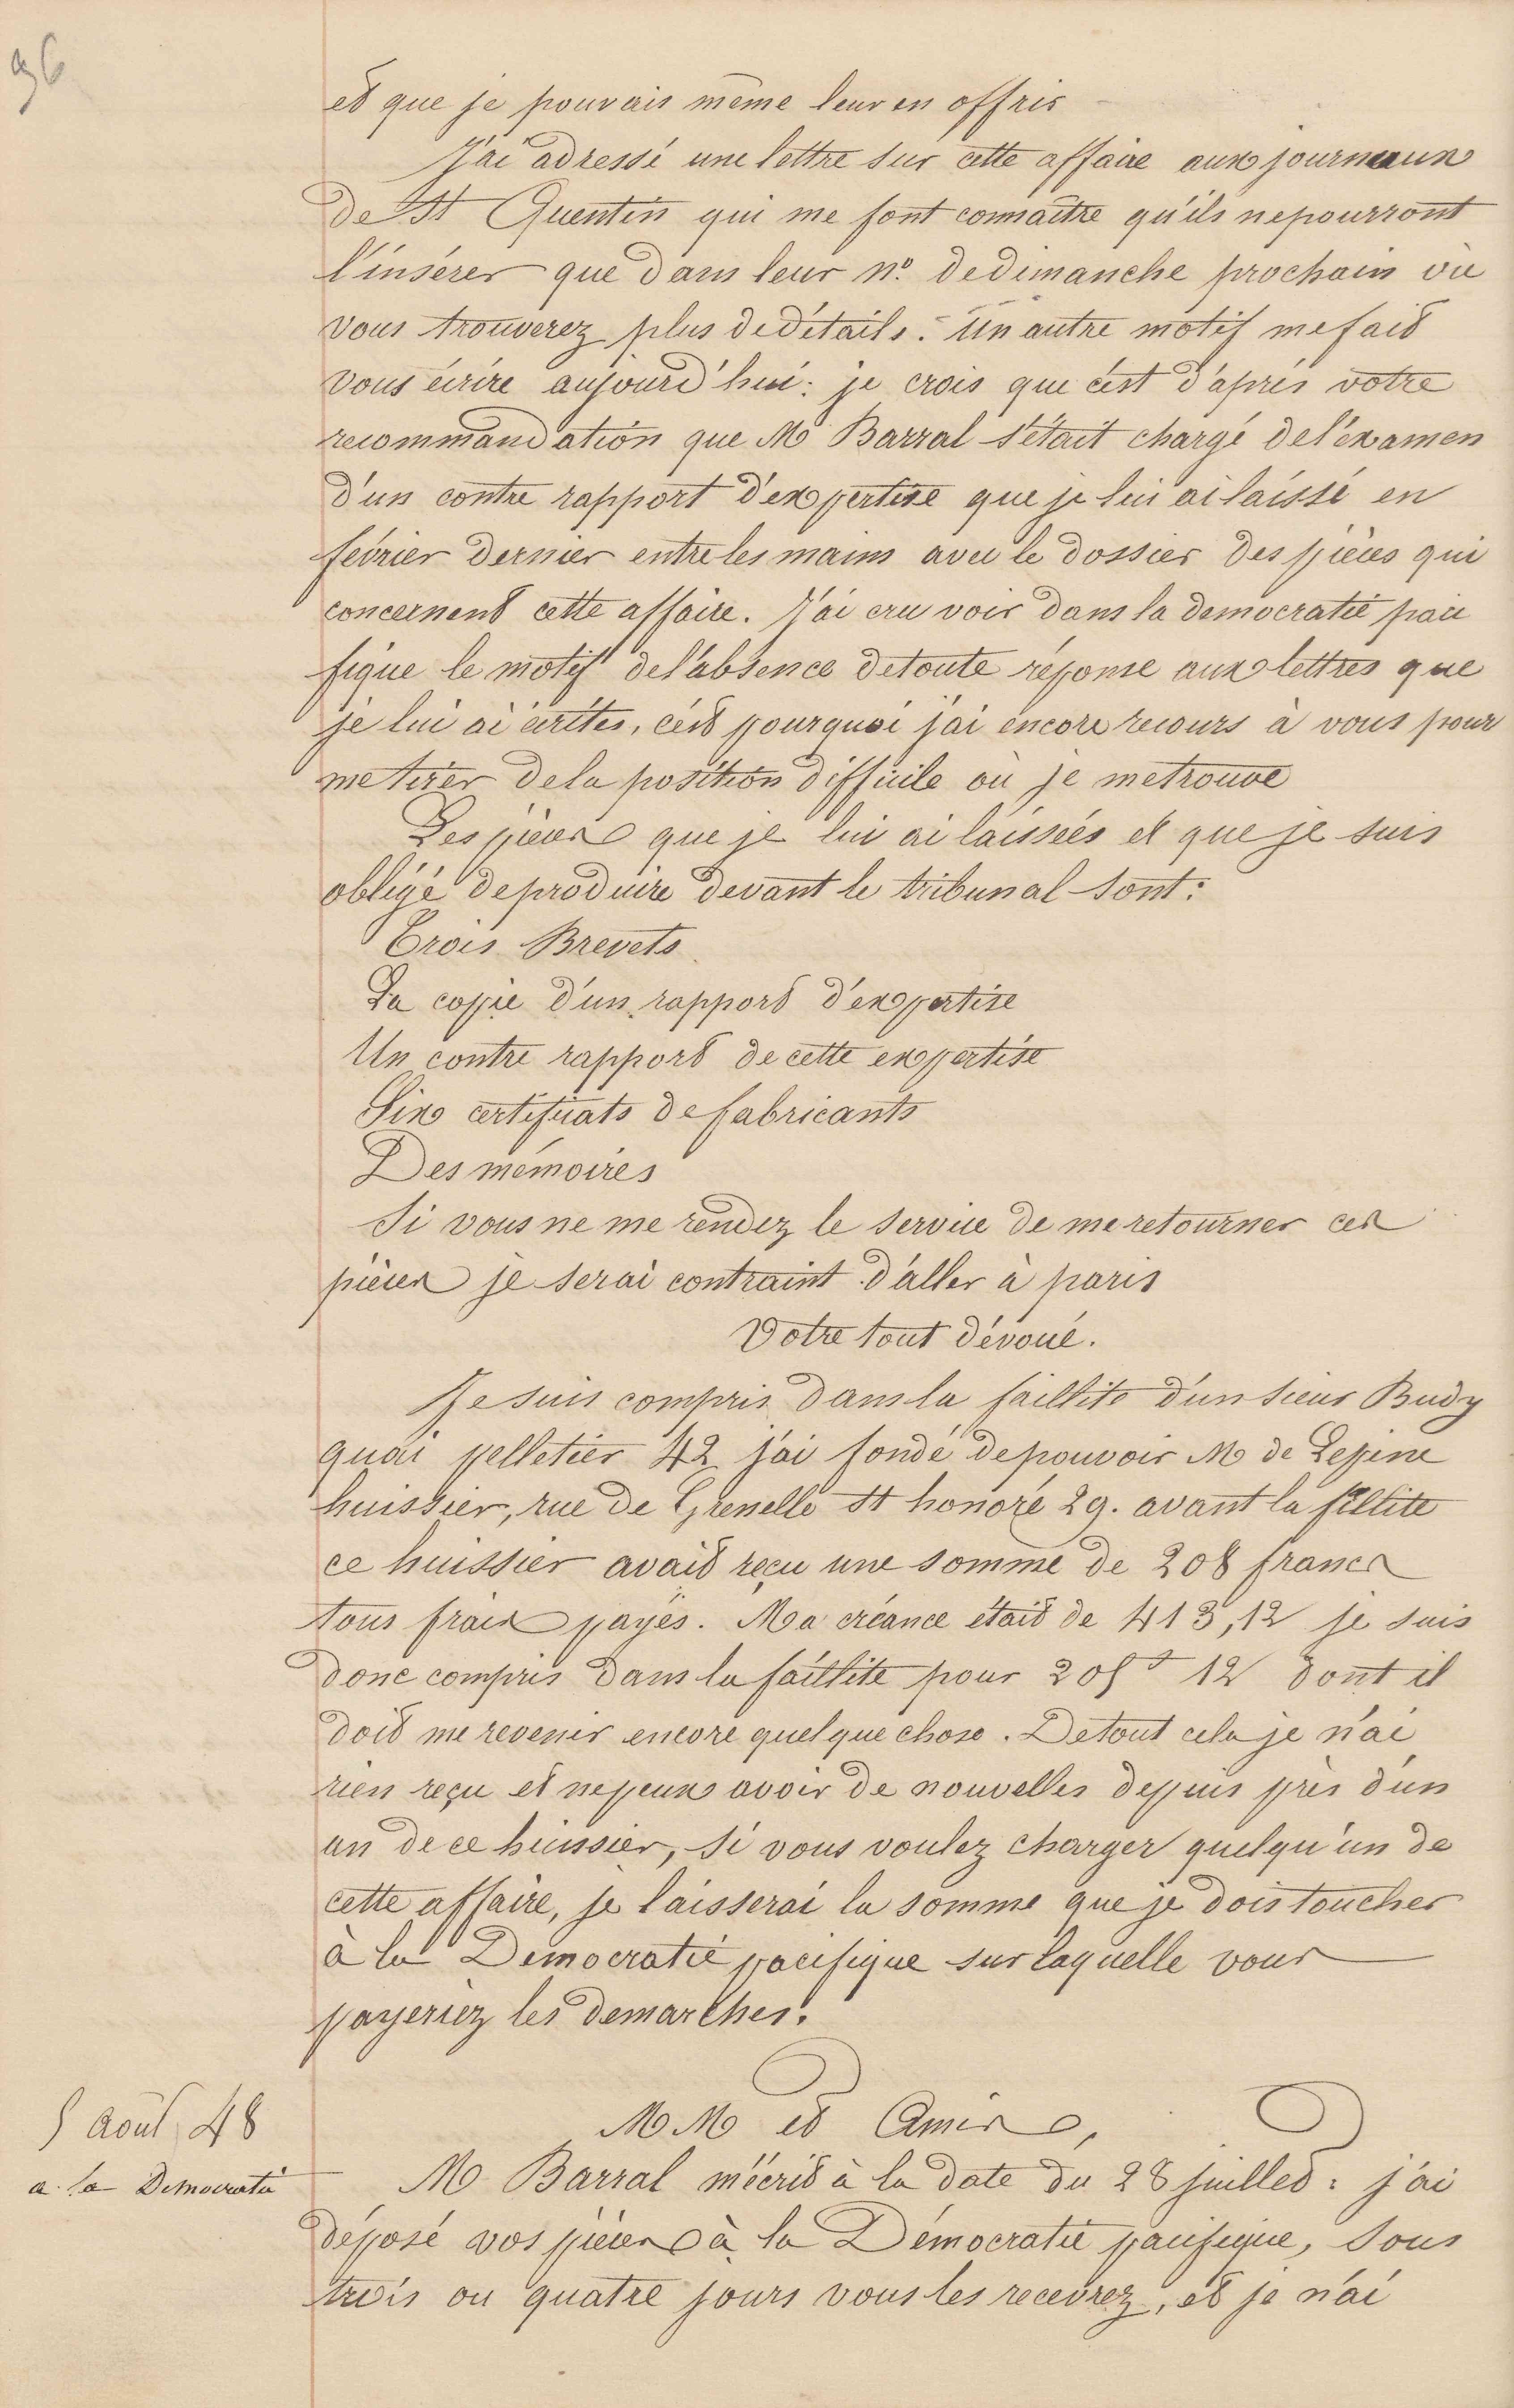 96
et que je pouvais même leur en offrir
J'ai adressé une lettre sur cette affaire aux journaux
de St Quentin qui me font connaitre qu'ils ne pourront
l'insérer que dans leur n° de dimanche prochain où
vous trouverez plus de détails. Un autre motif me fait
vous écrire aujourd'hui: je crois que c'est d'après votre
recommandation que Mr Barral s'était chargé de l'examen
d'un contre rapport d'expertise que je lui ai laissé en
février dernier entre les mains avec le dossier des pièces qui
concernent cette affaire. J'ai cru voir dans la democratie paci
fique le motif de l'absence de toute réponse aux lettres que
je lui ai écrites, c'est pourquoi j'ai encore recours à vous pour
me tirer de la position difficile où je me trouve
Les pièces que je lui ai laissées et que je suis
obligé de produire devant le tribunal sont:
Trois Brevets
La copie d'un rapport d'expertise
Un contre rapport de cette expertise
Six certificats de fabricants
Des mémoires
Si vous ne me rendez le service de me retourner ces
pièces je serai contraint d'aller à paris
Votre tout dévoué.
Je suis compris dans la faillite d'un sieur Budy
quai pelletier 42 j'ai fondé de pouvoir M de Lepine
huissier, rue de Grenelle St honoré 29. avant la fillite
ce huissier avait reçu une somme de 208 francs
tous frais payés. Ma créance était de 413,12 je suis
donc compris dans la faillite pour 205 f 12 dont il
doit me revenir encore quelque chose. De tout cela je n'ai
rien reçu et ne peux avoir de nouvelles depuis près d'un
an de ce huissier, si vous voulez charger quelqu'un de
cette affaire, je laisserai la somme que je dois toucher
à la Démocratie pacifique sur laquelle vous
payeriez les demarches.
5 Août 48
a la Democratie
MM et Amis,
M Barral m'écrit à la date du 28 juillet: j'ai
déposé vos pièces à la Démocratie pacifique, sous
trois ou quatre jours vous les recevrez, et je n'ai